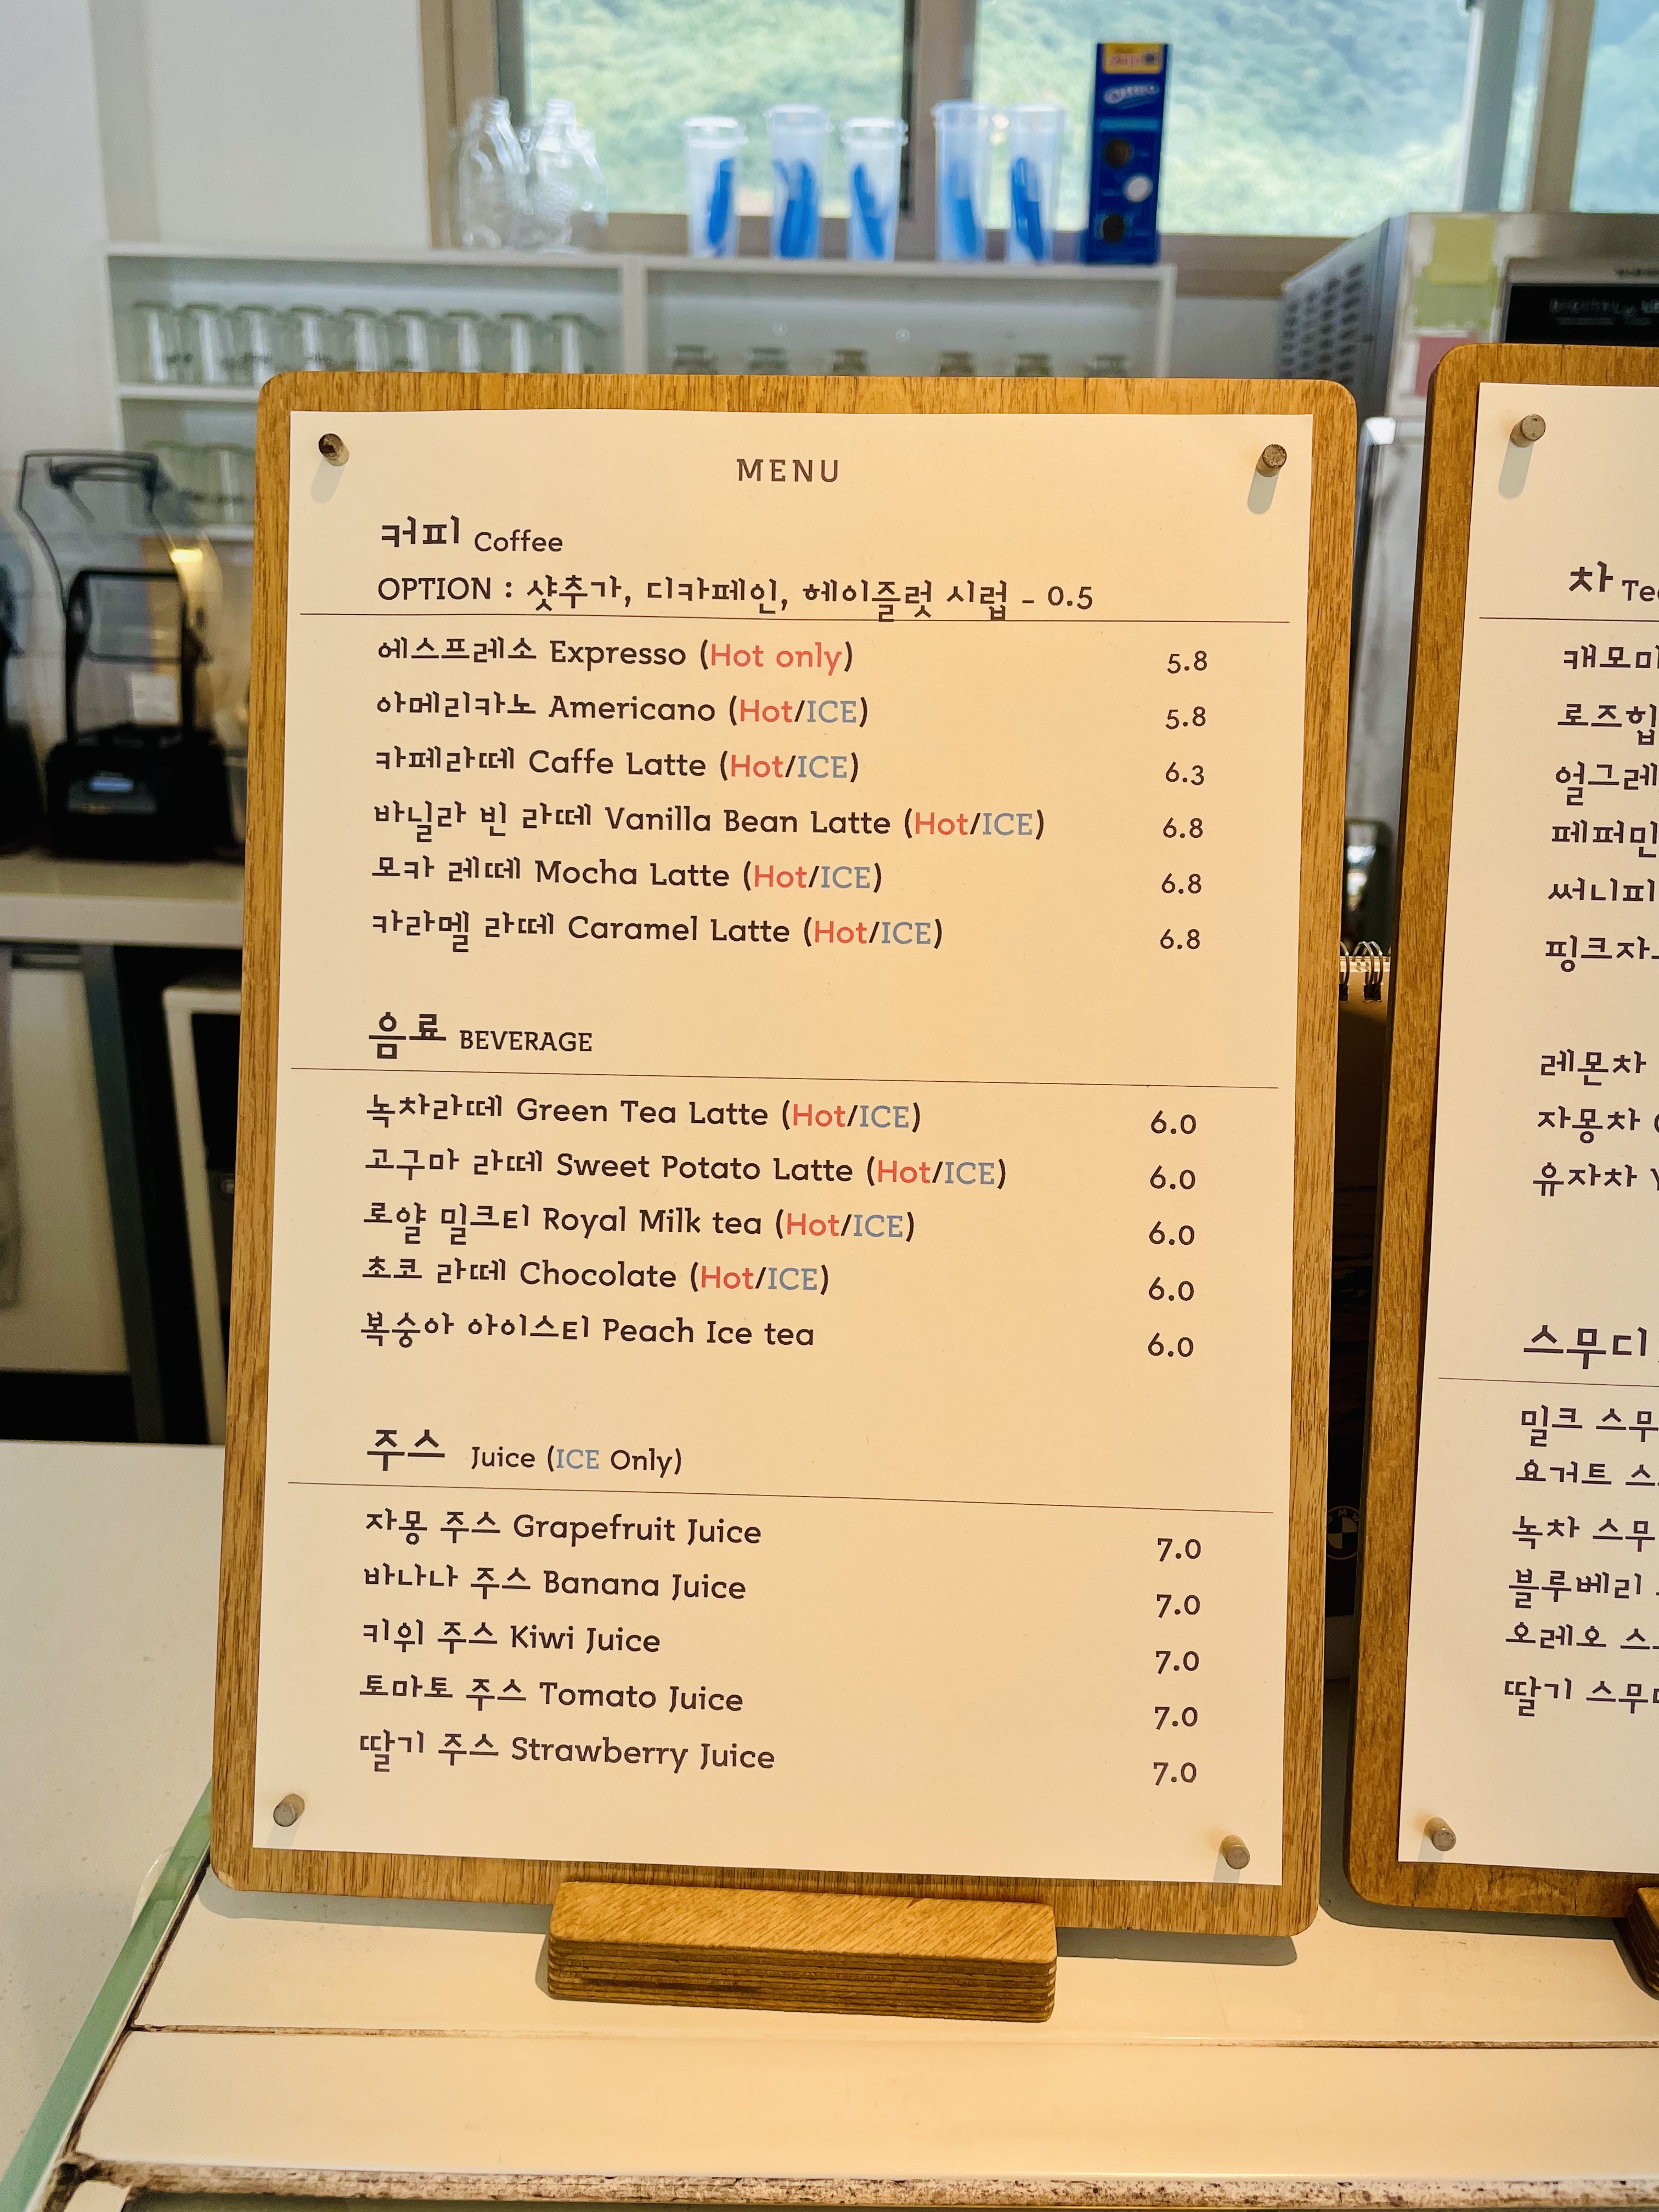 MENU
커피 Coffee
OPTION : 샷추가, 디카페인, 헤이즐럿 시럽 - 0.5
에스프레소 Expresso (Hot only) 5.8
아메리카노 Americano (Hot/ICE) 5.8
카페라떼 Caffe Latte (Hot/ICE) 6.3
바닐라 빈 라떼 Vanilla Bean Latte (Hot/ICE) 6.8
모카 레떼 Mocha Latte (Hot/ICE) 6.8
카라멜 라떼 Caramel Latte (Hot/ICE) 6.8
음료 BEVERAGE
녹차라떼 Green Tea Latte (Hot/ICE) 6.0
고구마 라떼 Sweet Potato Latte (Hot/ICE) 6.0
로얄 밀크티 Royal Milk tea (Hot/ICE) 6.0
초코 라떼 Chocolate (Hot/ICE) 6.0
복숭아 아이스티 Peach Ice tea 6.0
주스 Juice (ICE Only)
자몽 주스 Grapefruit Juice 7.0
바나나 주스 Banana Juice 7.0
키위 주스 Kiwi Juice 7.0
토마토 주스 Tomato Juice 7.0
딸기 주스 Strawberry Juice 7.0
차
로즈힙
얼그레
페퍼민
써니피
레몬차
자몽차
유자차
스무디
밀크 스무
요거트 스
녹차 스무
블루베리
오레오 스
딸기 스무
OREO